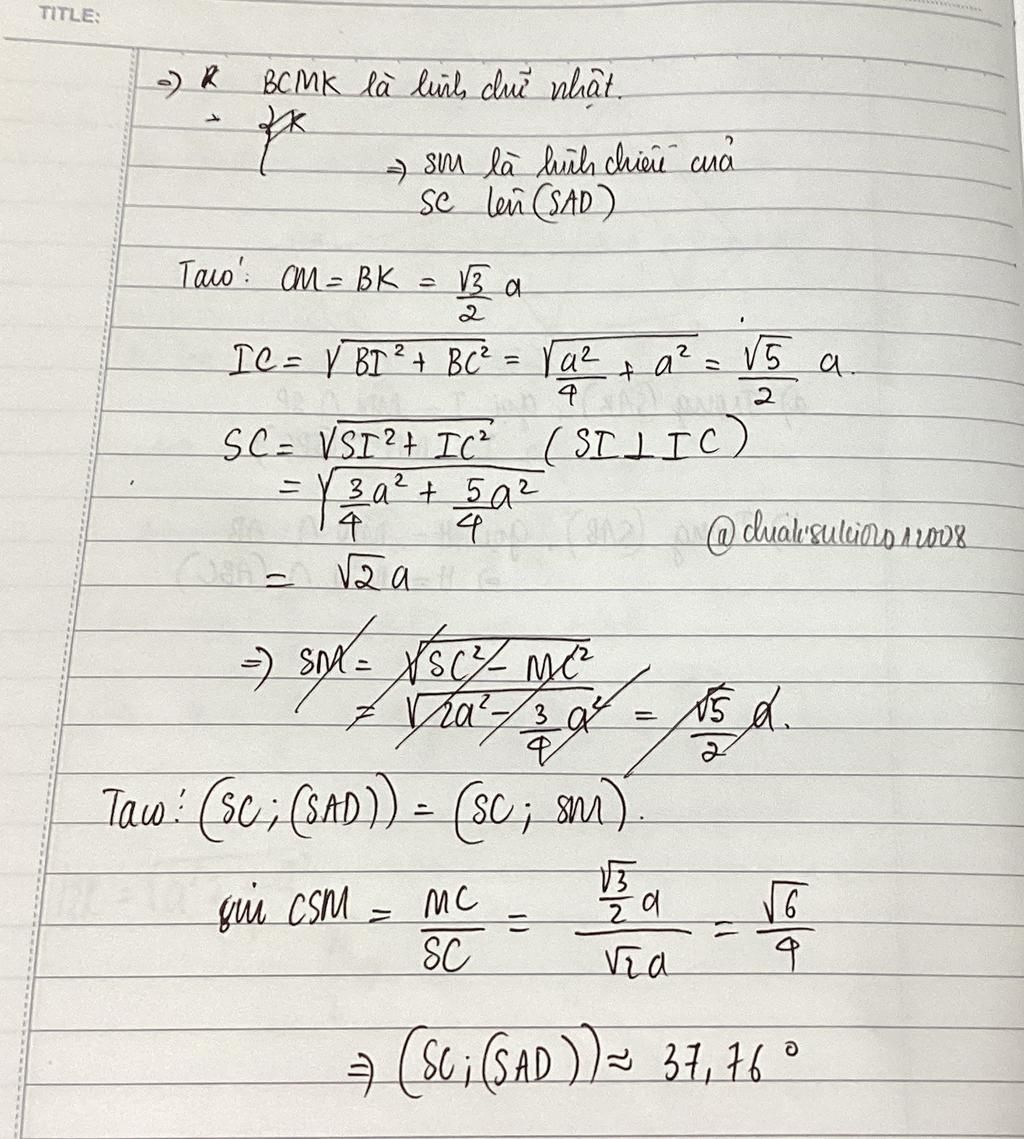 TITLE:
=> BCMK là hình chữ nhật.
K
=> SM là hình chiếu của
SC lên (SAD)
Ta có: CM = BK = √3/2 a
IC = √(BI² + BC²) = √(a²/4 + a²) = √5/2 a.
SC = √(SI² + IC²) (SI ⊥ IC)
= √(3/4 a² + 5/4 a²)
= √2 a
=> SM = √(SC² - MC²)
= √(2a² - 3/4 a²) = √5/2 a.
Ta có: (SC; (SAD)) = (SC; SM).
sin CSM = MC/SC = (√3/2 a)/(√2 a) = √6/4
=> (SC; (SAD)) ≈ 37,76°